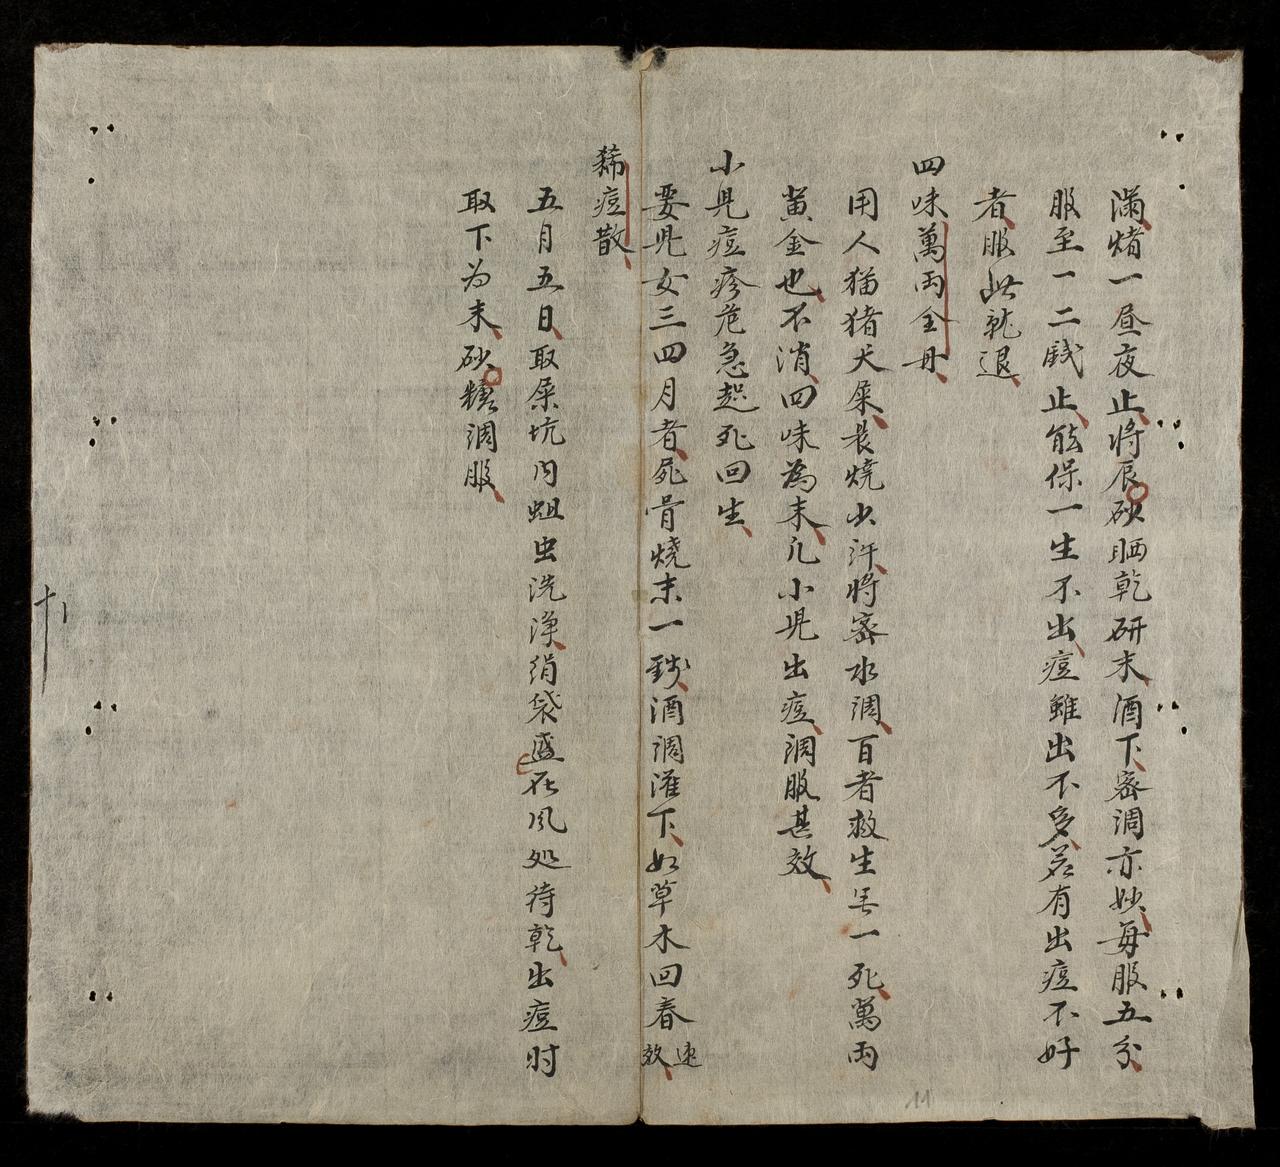 滿煮一昼夜止將辰砂晒乾研末酒下密调亦妙每服五分
服至一二錢止能保一生不出痘雖出不多若有出痘不好
者服此就退
四味萬両全丹
用人猫猪犬屎衣燒少許將密水调百者救生無一死萬両
黄金也不消四味為末凡小児出痘调服甚效
小児痘疹危急起死回生
要児女三四月者屍骨燒末一錢酒调灌下如草木回春速效
稀痘散
五月五日取屎坑内蛆虫洗净绢袋盛在風処待乾出痘时
取下为末砂糖调服
十八
11